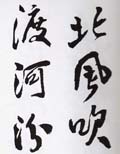 北風吹
渡河汾